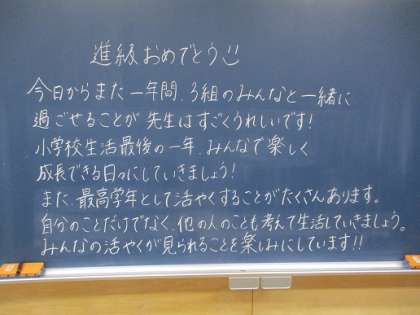 進級おめでとう
今日からまた一年間、3組のみんなと一緒に
過ごせることが先生はすごくうれしいです!
小学校生活最後の一年、みんなで楽しく
成長できる日々にしていきましょう!
また、最高学年として活やくすることがたくさんあります。
自分のことだけでなく、他の人のことも考えて生活していきましょう。
みんなの活やくが見られることを楽しみにしています!!